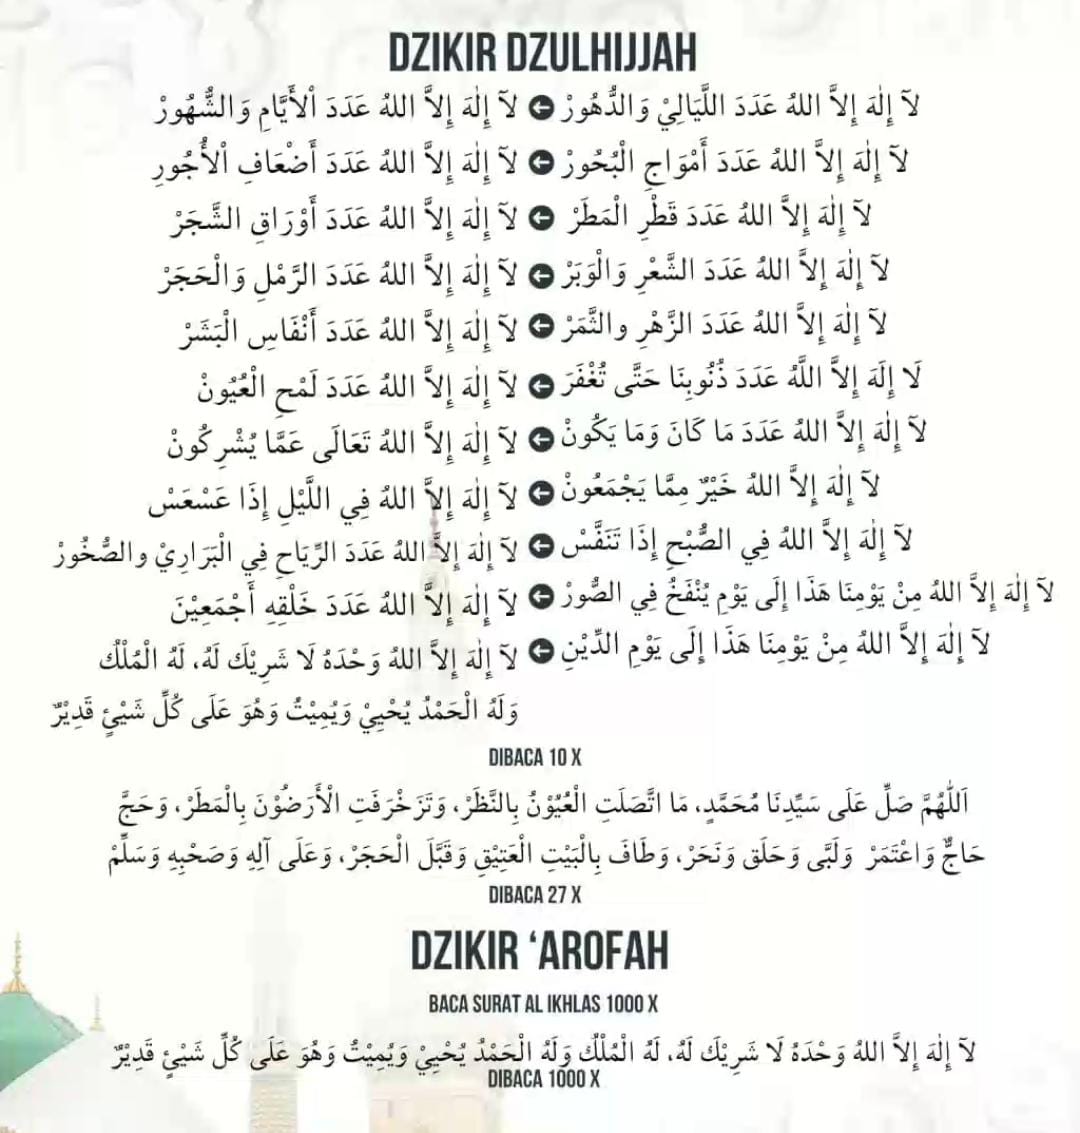 DZIKIR DZULHIJJAH
لآ إِلٰهَ إِلاَّ اللهُ عَدَدَ اللَّيَالِيْ وَالدُّهُورْ ← لآ إِلٰهَ إِلاَّ اللهُ عَدَدَ اْلأَيَّامِ وَالشُّهُورْ
لآ إِلٰهَ إِلاَّ اللهُ عَدَدَ أَمْوَاجِ الْبُحُورْ ← لآ إِلٰهَ إِلاَّ اللهُ عَدَدَ أَضْعَافِ اْلأُجُورِ
لآ إِلٰهَ إِلاَّ اللهُ عَدَدَ قَطْرِ الْمَطَرْ ← لآ إِلٰهَ إِلاَّ اللهُ عَدَدَ أَوْرَاقِ الشَّجَرْ
لآ إِلٰهَ إِلاَّ اللهُ عَدَدَ الشَّعْرِ وَالْوَبَرْ ← لآ إِلٰهَ إِلاَّ اللهُ عَدَدَ الرَّمْلِ وَالْحَجَرْ
لآ إِلٰهَ إِلاَّ اللهُ عَدَدَ الزَّهْرِ والثَّمَرْ ← لآ إِلٰهَ إِلاَّ اللهُ عَدَدَ أَنْفَاسِ الْبَشَرْ
لَا إِلَهَ إِلاَّ اللَّهُ عَدَدَ ذُنُوبِنَا حَتَّى تُغْفَرَ ← لآ إِلٰهَ إِلاَّ اللهُ عَدَدَ لَمْحِ الْعُيُونْ
لآ إِلٰهَ إِلاَّ اللهُ عَدَدَ مَا كَانَ وَمَا يَكُونْ ← لآ إِلٰهَ إِلاَّ اللهُ تَعَالَى عَمَّا يُشْرِكُونْ
لآ إِلٰهَ إِلاَّ اللهُ خَيْرٌ مِمَّا يَجْمَعُونْ ← لآ إِلٰهَ إِلاَّ اللهُ فِي اللَّيْلِ إِذَا عَسْعَسْ
لآ إِلٰهَ إِلاَّ اللهُ فِي الصُّبْحِ إِذَا تَنَفَّسْ ← لآ إِلٰهَ إِلاَّ اللهُ عَدَدَ الرِّيَاحِ فِي الْبَرَارِيْ والصُّخُورْ
لآ إِلٰهَ إِلاَّ اللهُ مِنْ يَوْمِنَا هَذَا إِلَى يَوْمِ يُنْفَخُ فِي الصُّورْ ← لآ إِلٰهَ إِلاَّ اللهُ عَدَدَ خَلْقِهِ أَجْمَعِيْنَ
لآ إِلٰهَ إِلاَّ اللهُ مِنْ يَوْمِنَا هَذَا إِلَى يَوْمِ الدِّيْنِ ← لآ إِلٰهَ إِلاَّ اللهُ وَحْدَهُ لَا شَرِيْكَ لَهُ، لَهُ الْمُلْكُ
وَلَهُ الْحَمْدُ يُحْيِيْ وَيُمِيْتُ وَهُوَ عَلَى كُلِّ شَيْئٍ قَدِيْرٌ
DIBACA 10 X
اَللّٰهُمَّ صَلِّ عَلَى سَيِّدِنَا مُحَمَّدٍ، مَا اتَّصَلَتِ الْعُيُوْنُ بِالنَّظَرْ، وَتَزَخْرَفَتِ الْأَرَضُوْنَ بِالْمَطَرْ، وَحَجَّ
حَاجٌّ وَاعْتَمَرْ وَلَبَّى وَحَلَقَ وَنَحَرْ، وَطَافَ بِالْبَيْتِ الْعَتِيْقِ وَقَبَّلَ الْحَجَرْ، وَعَلَى آلِهِ وَصَحْبِهِ وَسَلِّمْ
DIBACA 27 X
DZIKIR ‘AROFAH
BACA SURAT AL IKHLAS 1000 X
لآ إِلٰهَ إِلاَّ اللهُ وَحْدَهُ لَا شَرِيْكَ لَهُ، لَهُ الْمُلْكُ وَلَهُ الْحَمْدُ يُحْيِيْ وَيُمِيْتُ وَهُوَ عَلَى كُلِّ شَيْئٍ قَدِيْرٌ
DIBACA 1000 X